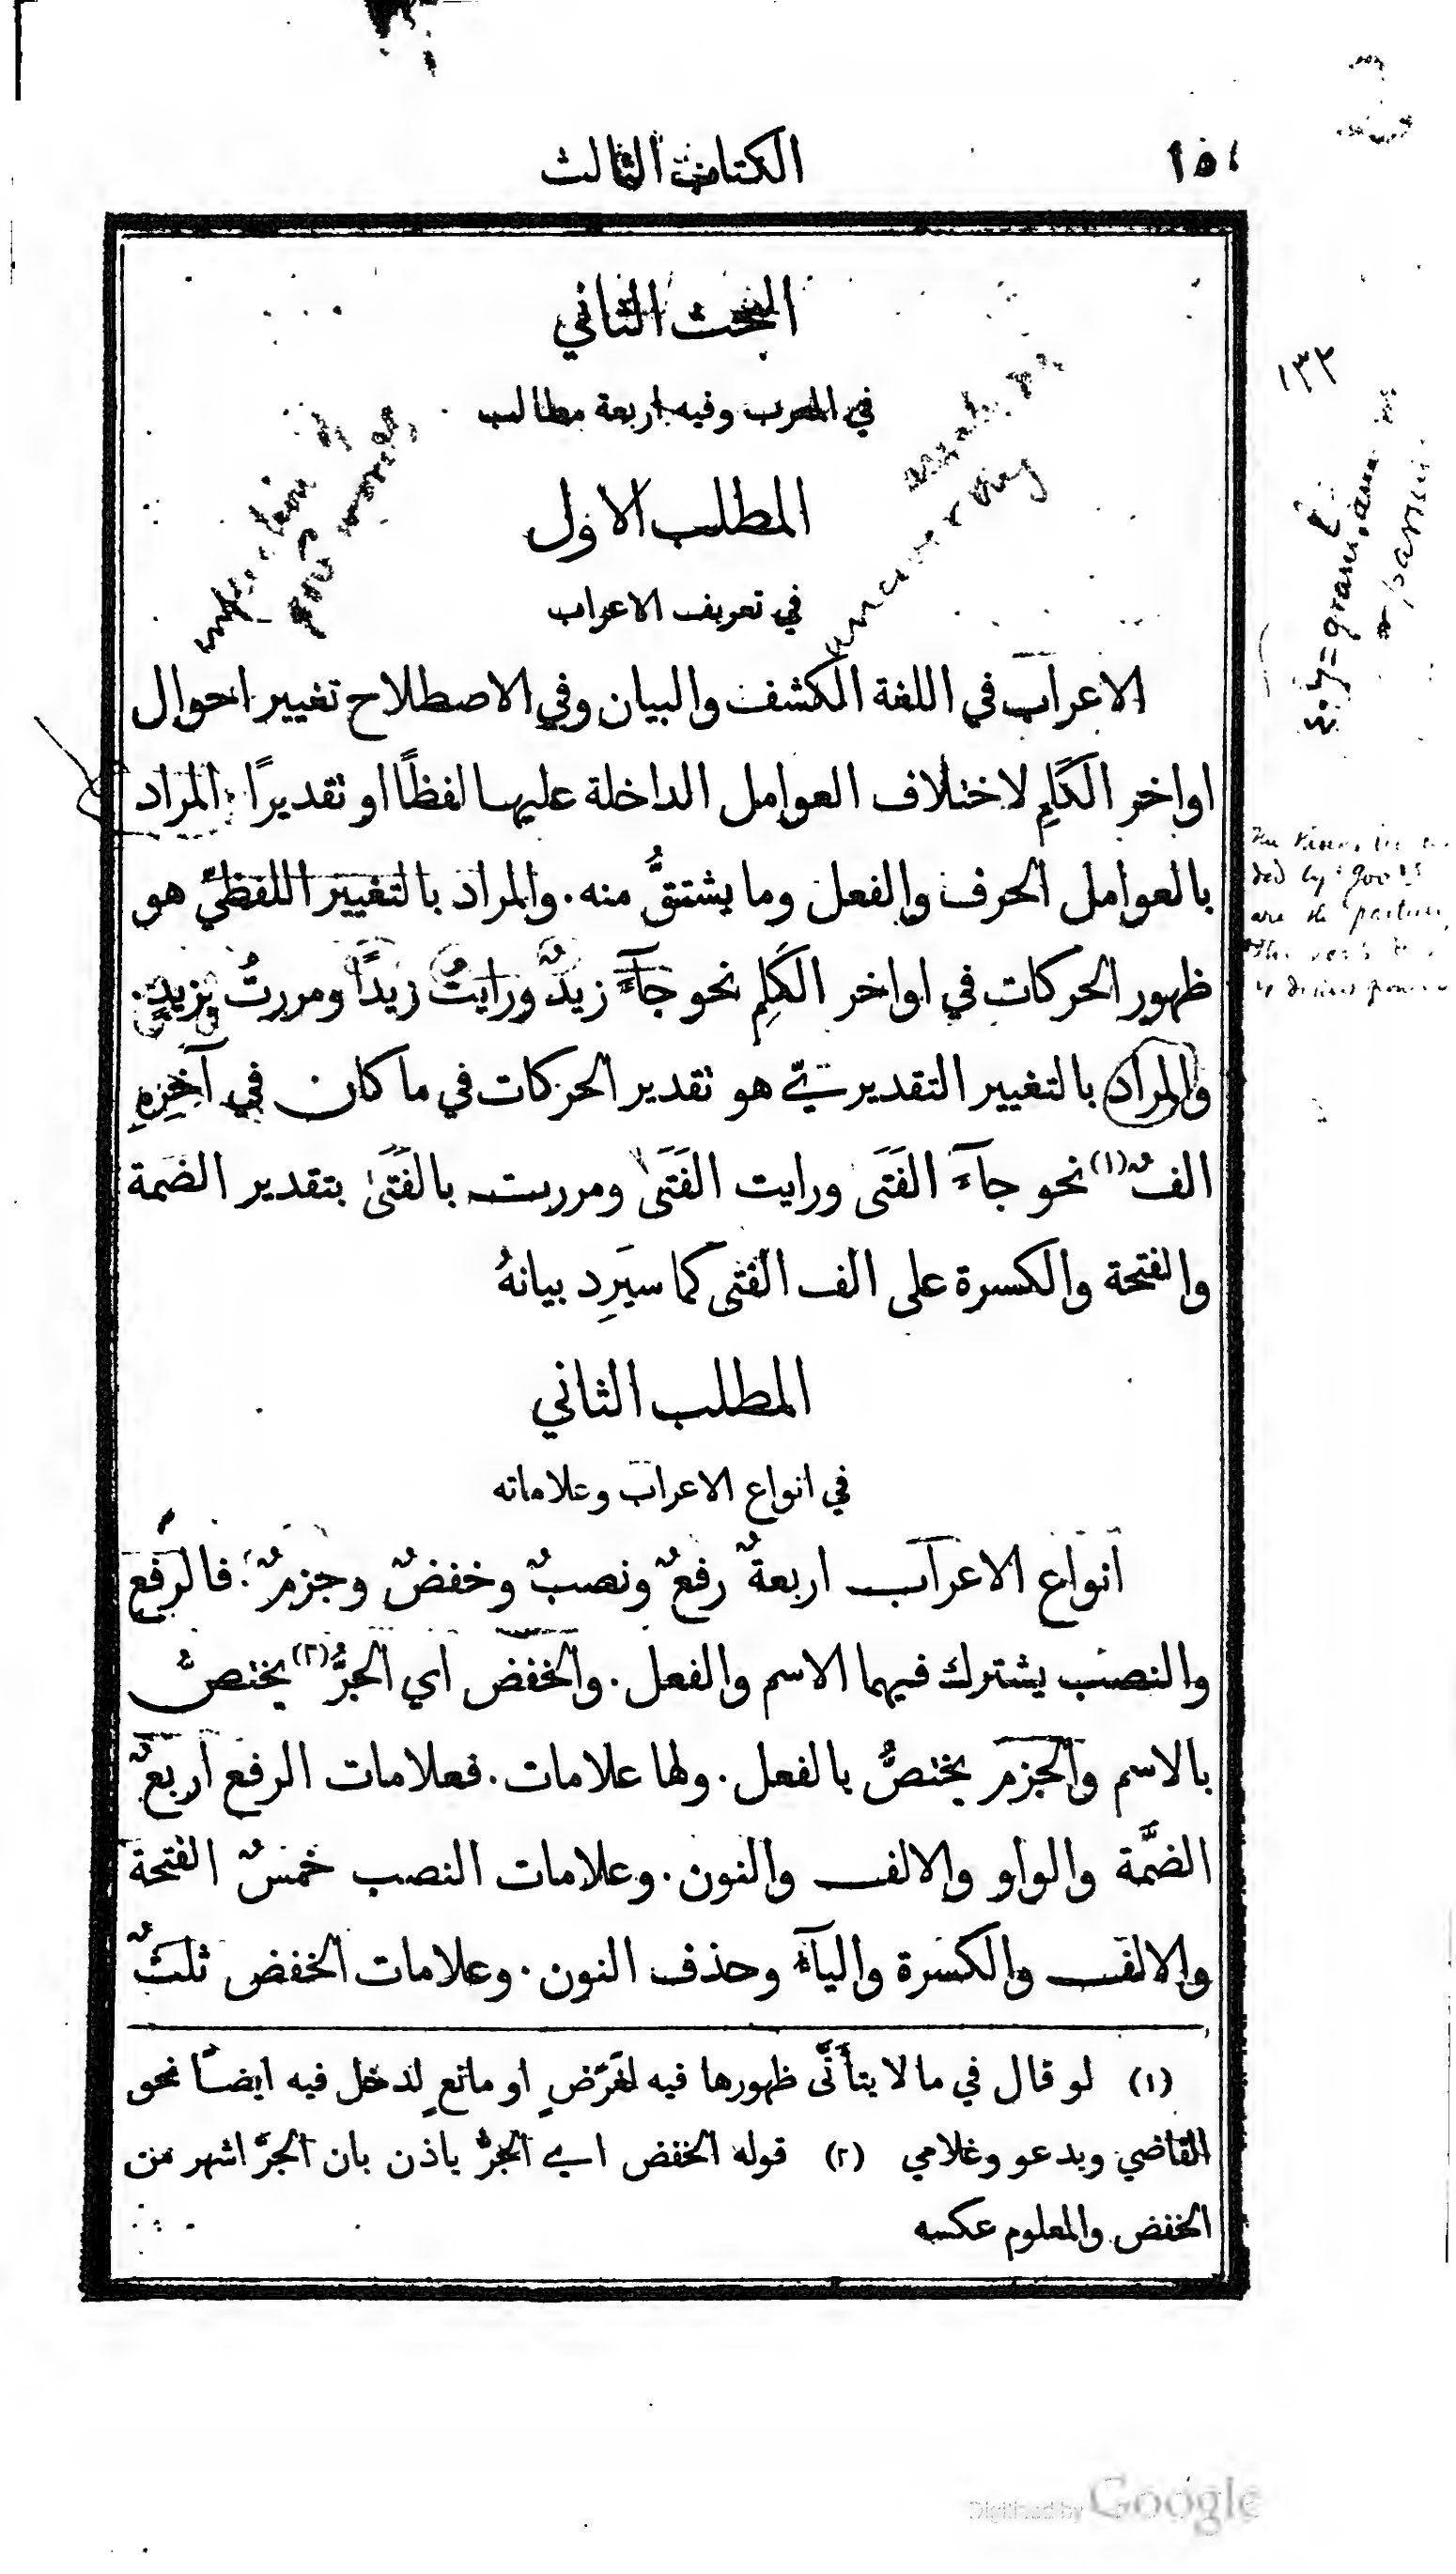 الكتاب الثالث
البحث الثاني
في المعرب وفيه اربعة مطالب
المطلب الاول
في تعريف الاعراب
الاعراب في اللغة الكشف والبيان وفي الاصطلاح تغيير احوال
اواخر الكَلِمِ لاختلاف العوامل الداخلة عليها لفظًا او تقديرًا. المراد
بالعوامل الحرف والفعل وما يشتقُّ منه. والمراد بالتغيير اللفظيّ هو
ظهور الحركات في اواخر الكَلِم نحو جآءَ زيدٌ ورايتُ زيدًا ومررتُ بزيدٍ.
والمراد بالتغيير التقديريّ هو تقدير الحركات في ما كان في آخِرِهِ
الفٌ (١) نحو جآءَ الفَتَى ورايت الفَتَى ومررت بالفَتَى بتقدير الضمة
والفتحة والكسرة على الف الفَتَى كما سيَرِد بيانهُ
المطلب الثاني
في انواع الاعراب وعلاماته
انواع الاعراب اربعةٌ رفعٌ ونصبٌ وخفضٌ وجزمٌ. فالرفع
والنصب يشترك فيهما الاسم والفعل. والخفض اي الجرُّ (٢) يختصُّ
بالاسم والجزم يختصُّ بالفعل. ولها علامات. فعلامات الرفع اربعٌ
الضمَّة والواو والالف والنون. وعلامات النصب خمسٌ الفتحة
والالف والكسرة واليآء وحذف النون. وعلامات الخفض ثلثٌ
(١) لو قال في ما لا يتأتَّى ظهورها فيه لغَرَضٍ او مانعٍ لدخل فيه ايضًا نحو
القاضي ويدعو وغلامي (٢) قوله الخفض اي الجرُّ ياذن بان الجرَّ اشهر من
الخفض والمعلوم عكسه
١٣٢
Digitized by Google